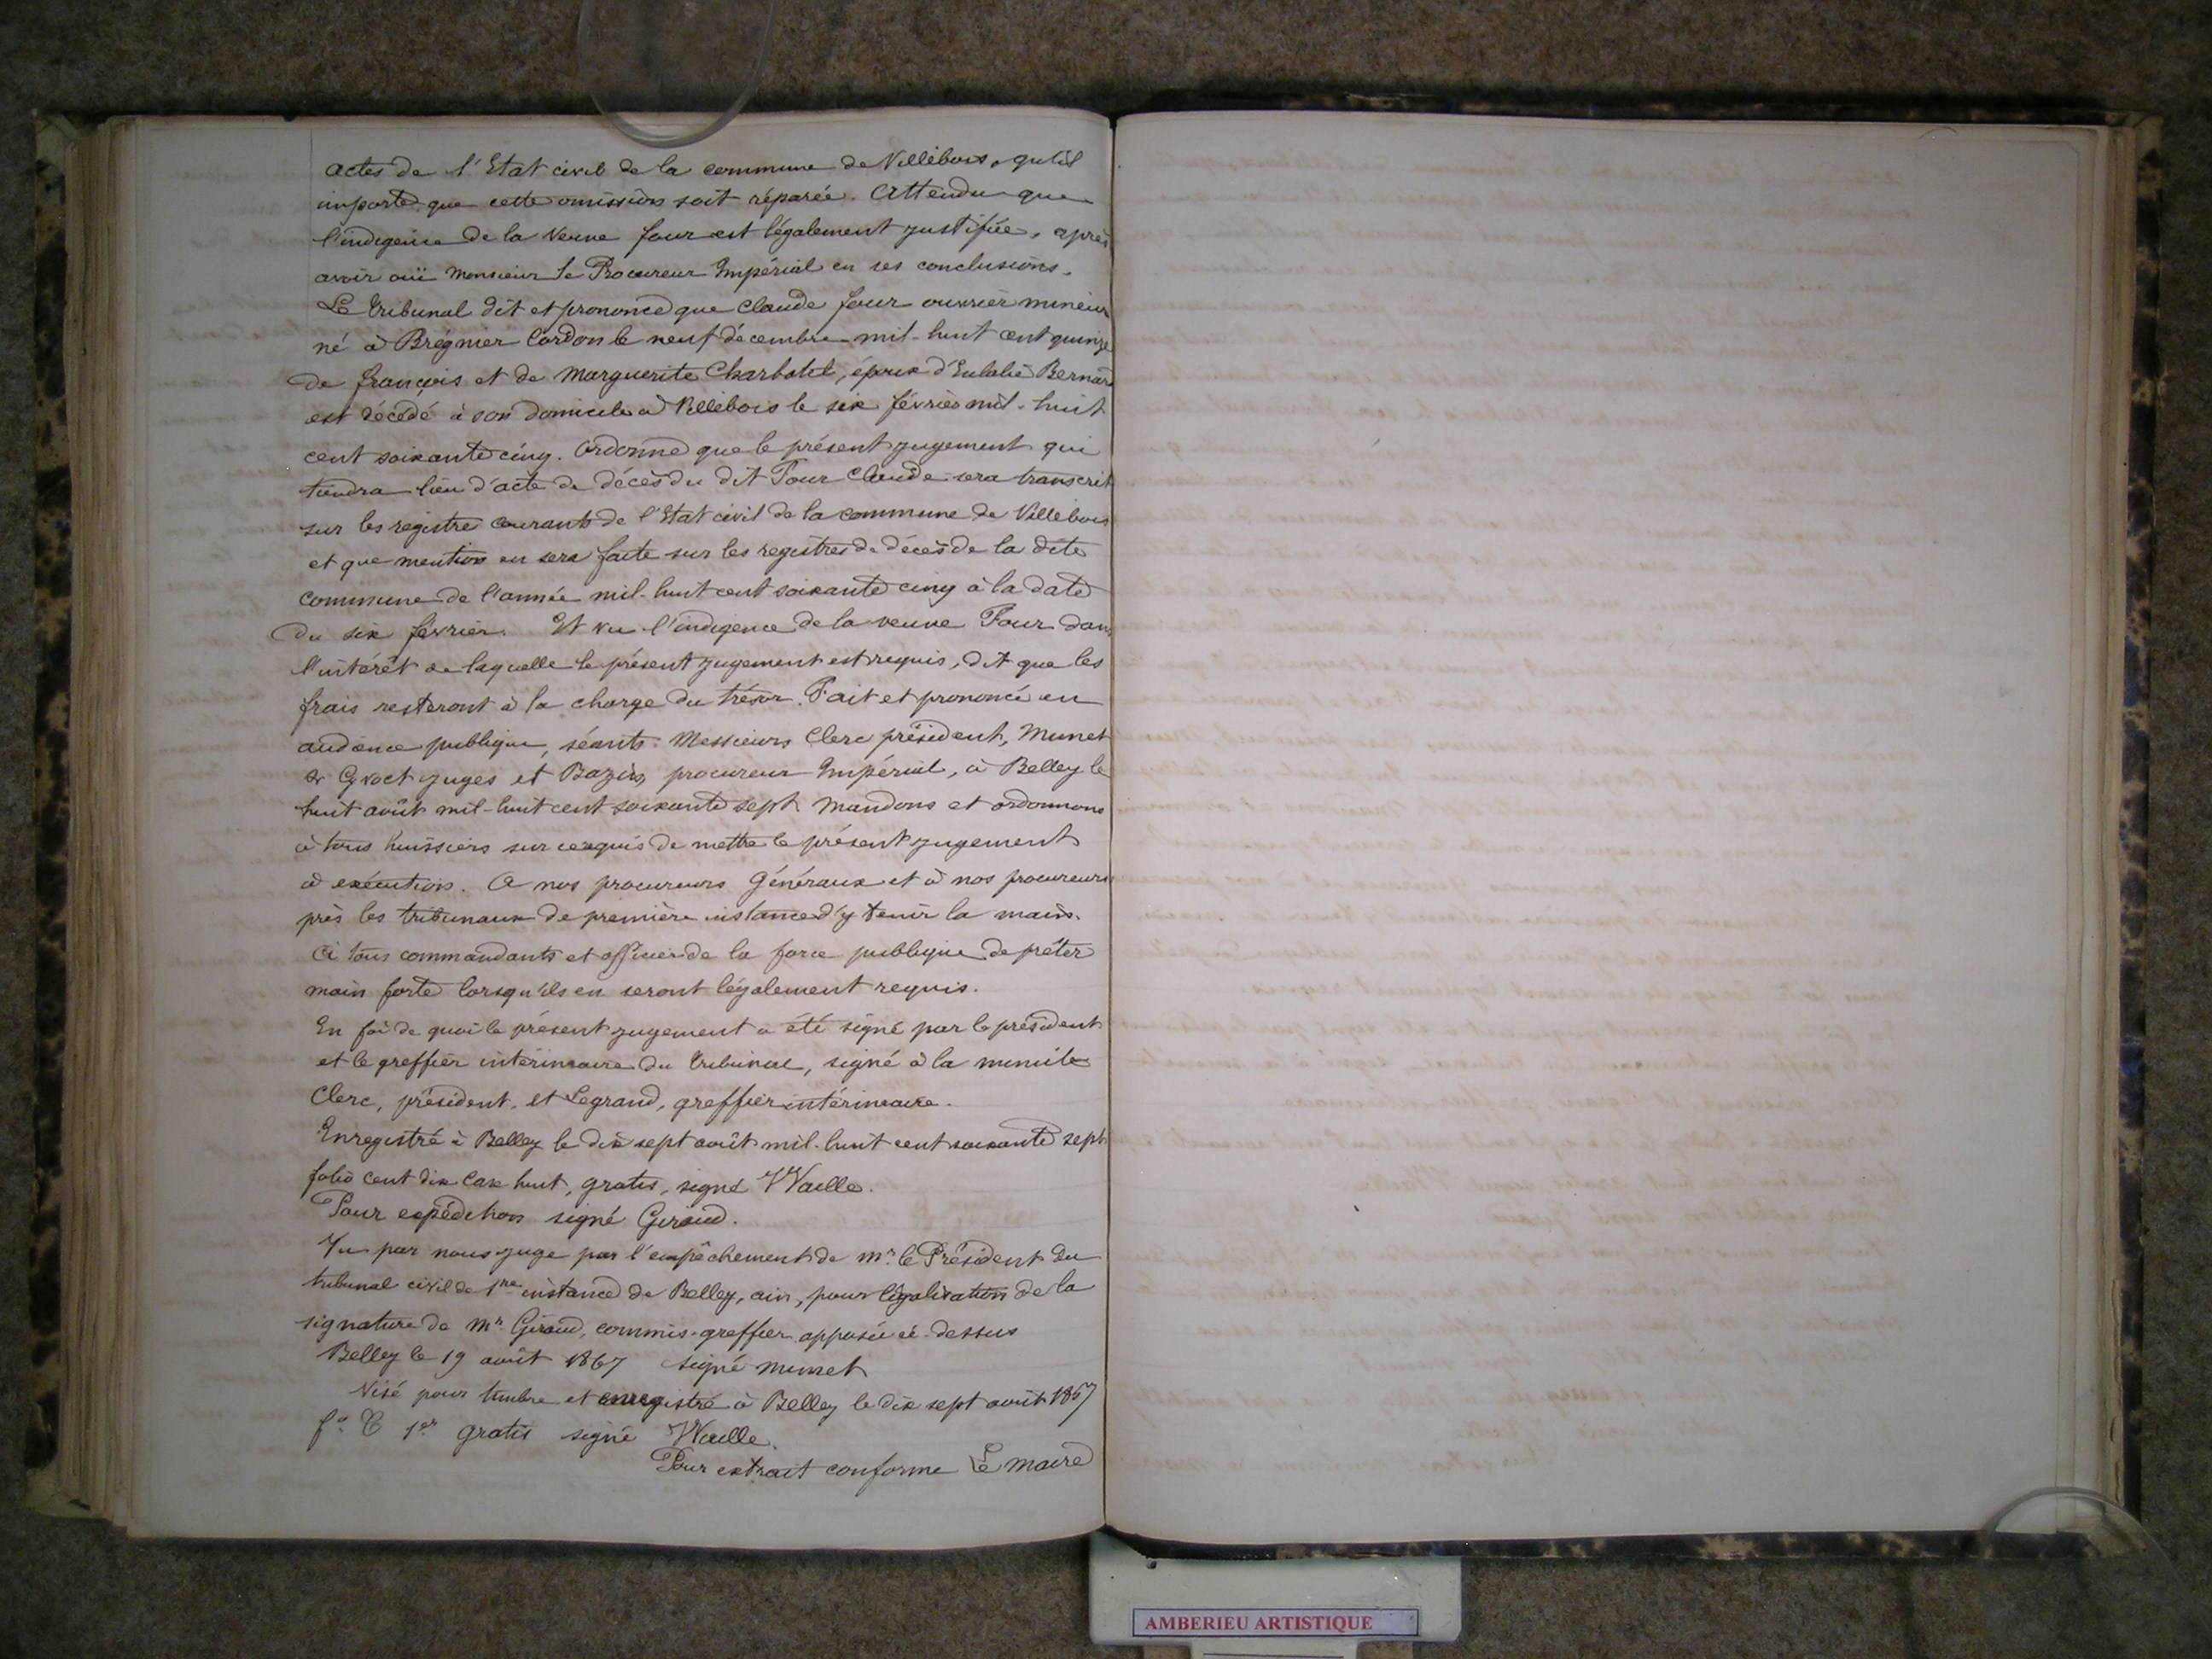 actes de l'Etat civil de la commune de Villebois, qu'il
importe que cette omission soit réparée. Attendu que
l'indigence de la veuve four est légalement justifiée, après
avoir ouï Monsieur le Procureur Impérial en ses conclusions.
Le tribunal dit et prononce que Claude four ouvrier mineur
né à Brégnier Cordon le neuf décembre mil-huit cent quinze
de françois et de Marguerite Charbotel, époux d'Eulalie Bernard
est décédé à son domicile à Villebois le six février mil-huit
cent soixante cinq. Ordonne que le présent jugement qui
tiendra lieu d'acte de décès du dit Four Claude sera transcrit
sur les registre courants de l'Etat civil de la commune de Villebois
et que mention en sera faite sur les registres de décès de la dite
commune de l'année mil-huit cent soixante cinq à la date
du six février. Et vu l'indigence de la veuve Four dans
l'intérêt de laquelle le présent jugement est requis, dit que les
frais resteront à la charge du trésor. Fait et prononcé en
audience publique, séants Messieurs Clerc président, Munet
& juges et Bazin, procureur Impérial, à Belley le
huit août mil-huit cent soixante sept Mandons et ordonnons
à tous huissiers sur ce requis de mettre le présent jugement
à exécution. A nos procureurs Généraux et à nos procureurs
près les tribunaux de première instance d'y tenir la main.
A tous commandants et officier de la force publique de prêter
main forte lorsqu'ils en seront légalement requis.
En foi de quoi le présent jugement a été signé par le président
et le greffier intérimaire du tribunal, signé à la minute
Clerc, président, et Legrand, greffier intérimaire.
Enregistré à Belley le dix sept août mil-huit cent soixante sept
folio cent dix case huit, gratis, signé Waille.
Pour expédition signé Giraud.
Vu par nous juge par l'empêchement de Mr. le Président du
tribunal civil de 1re instance de Belley, ain, pour légalisation de la
signature de Mr. Giraud, commis-greffier apposée ci-dessus
Belley le 19 août 1867 signé Munet
Visé pour timbre et enregistré à Belley le dix sept août 1867
fo. C 1er gratis signé Waille.
Pour extrait conforme Le Maire
AMBERIEU ARTISTIQUE